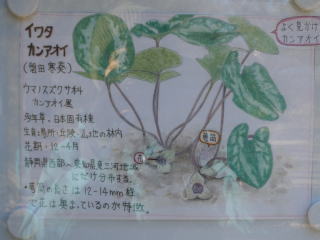 イワタ
カンアオイ
(磐田寒葵)
ウマノスズクサ科
カンアオイ属
多年草、日本固有種
生育場所：丘陵、山地の林内
花期：12~4月
静岡県西部~愛知県東三河地域
にだけ分布する。
・萼筒の長さは12-14mm程
で花は奥まっているのが特徴。
よく見かけ
カンアオイ